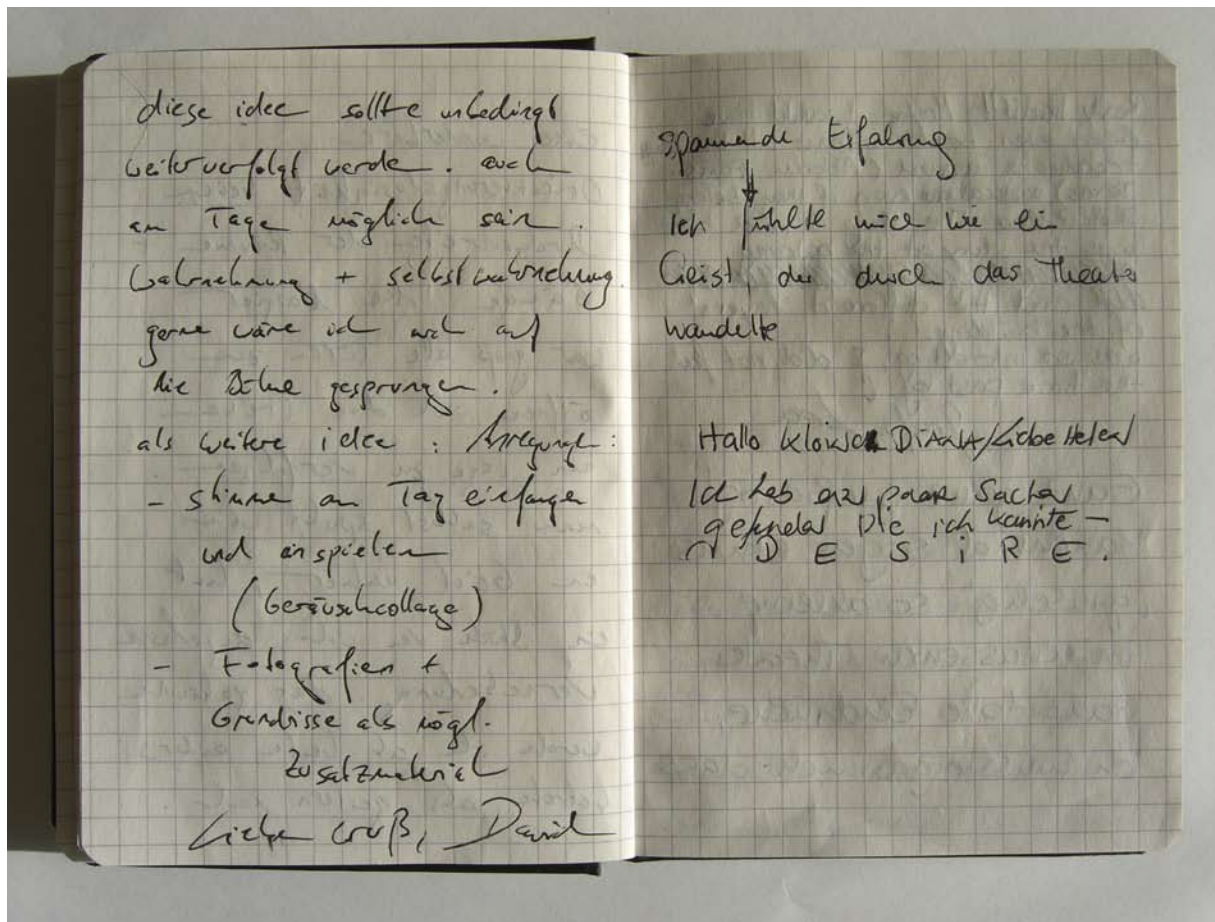 diese idee sollte unbedingt
weiterverfolgt werde. auch
am Tage möglich sein.
Wahrnehmung + selbstwahrnehmung.
gerne wäre ich auch auf
die Bühne gesprungen.
als weitere idee : Anregung :
- stimme am Tag einfangen
und anspielen
(Geräuschcollage)
- Fotografien +
Grundrisse als mögl.
Zusatzmaterial
Liebe Gruß, David
Spannende Erfalrung
Ich fühlte mich wie ein
Geist, der durch das Theater
wandelte
Hallo kloine DiANA/Liebe Helen
Ich hab ein paar Sachen
gefunden Die ich kannte –
DESiRE.